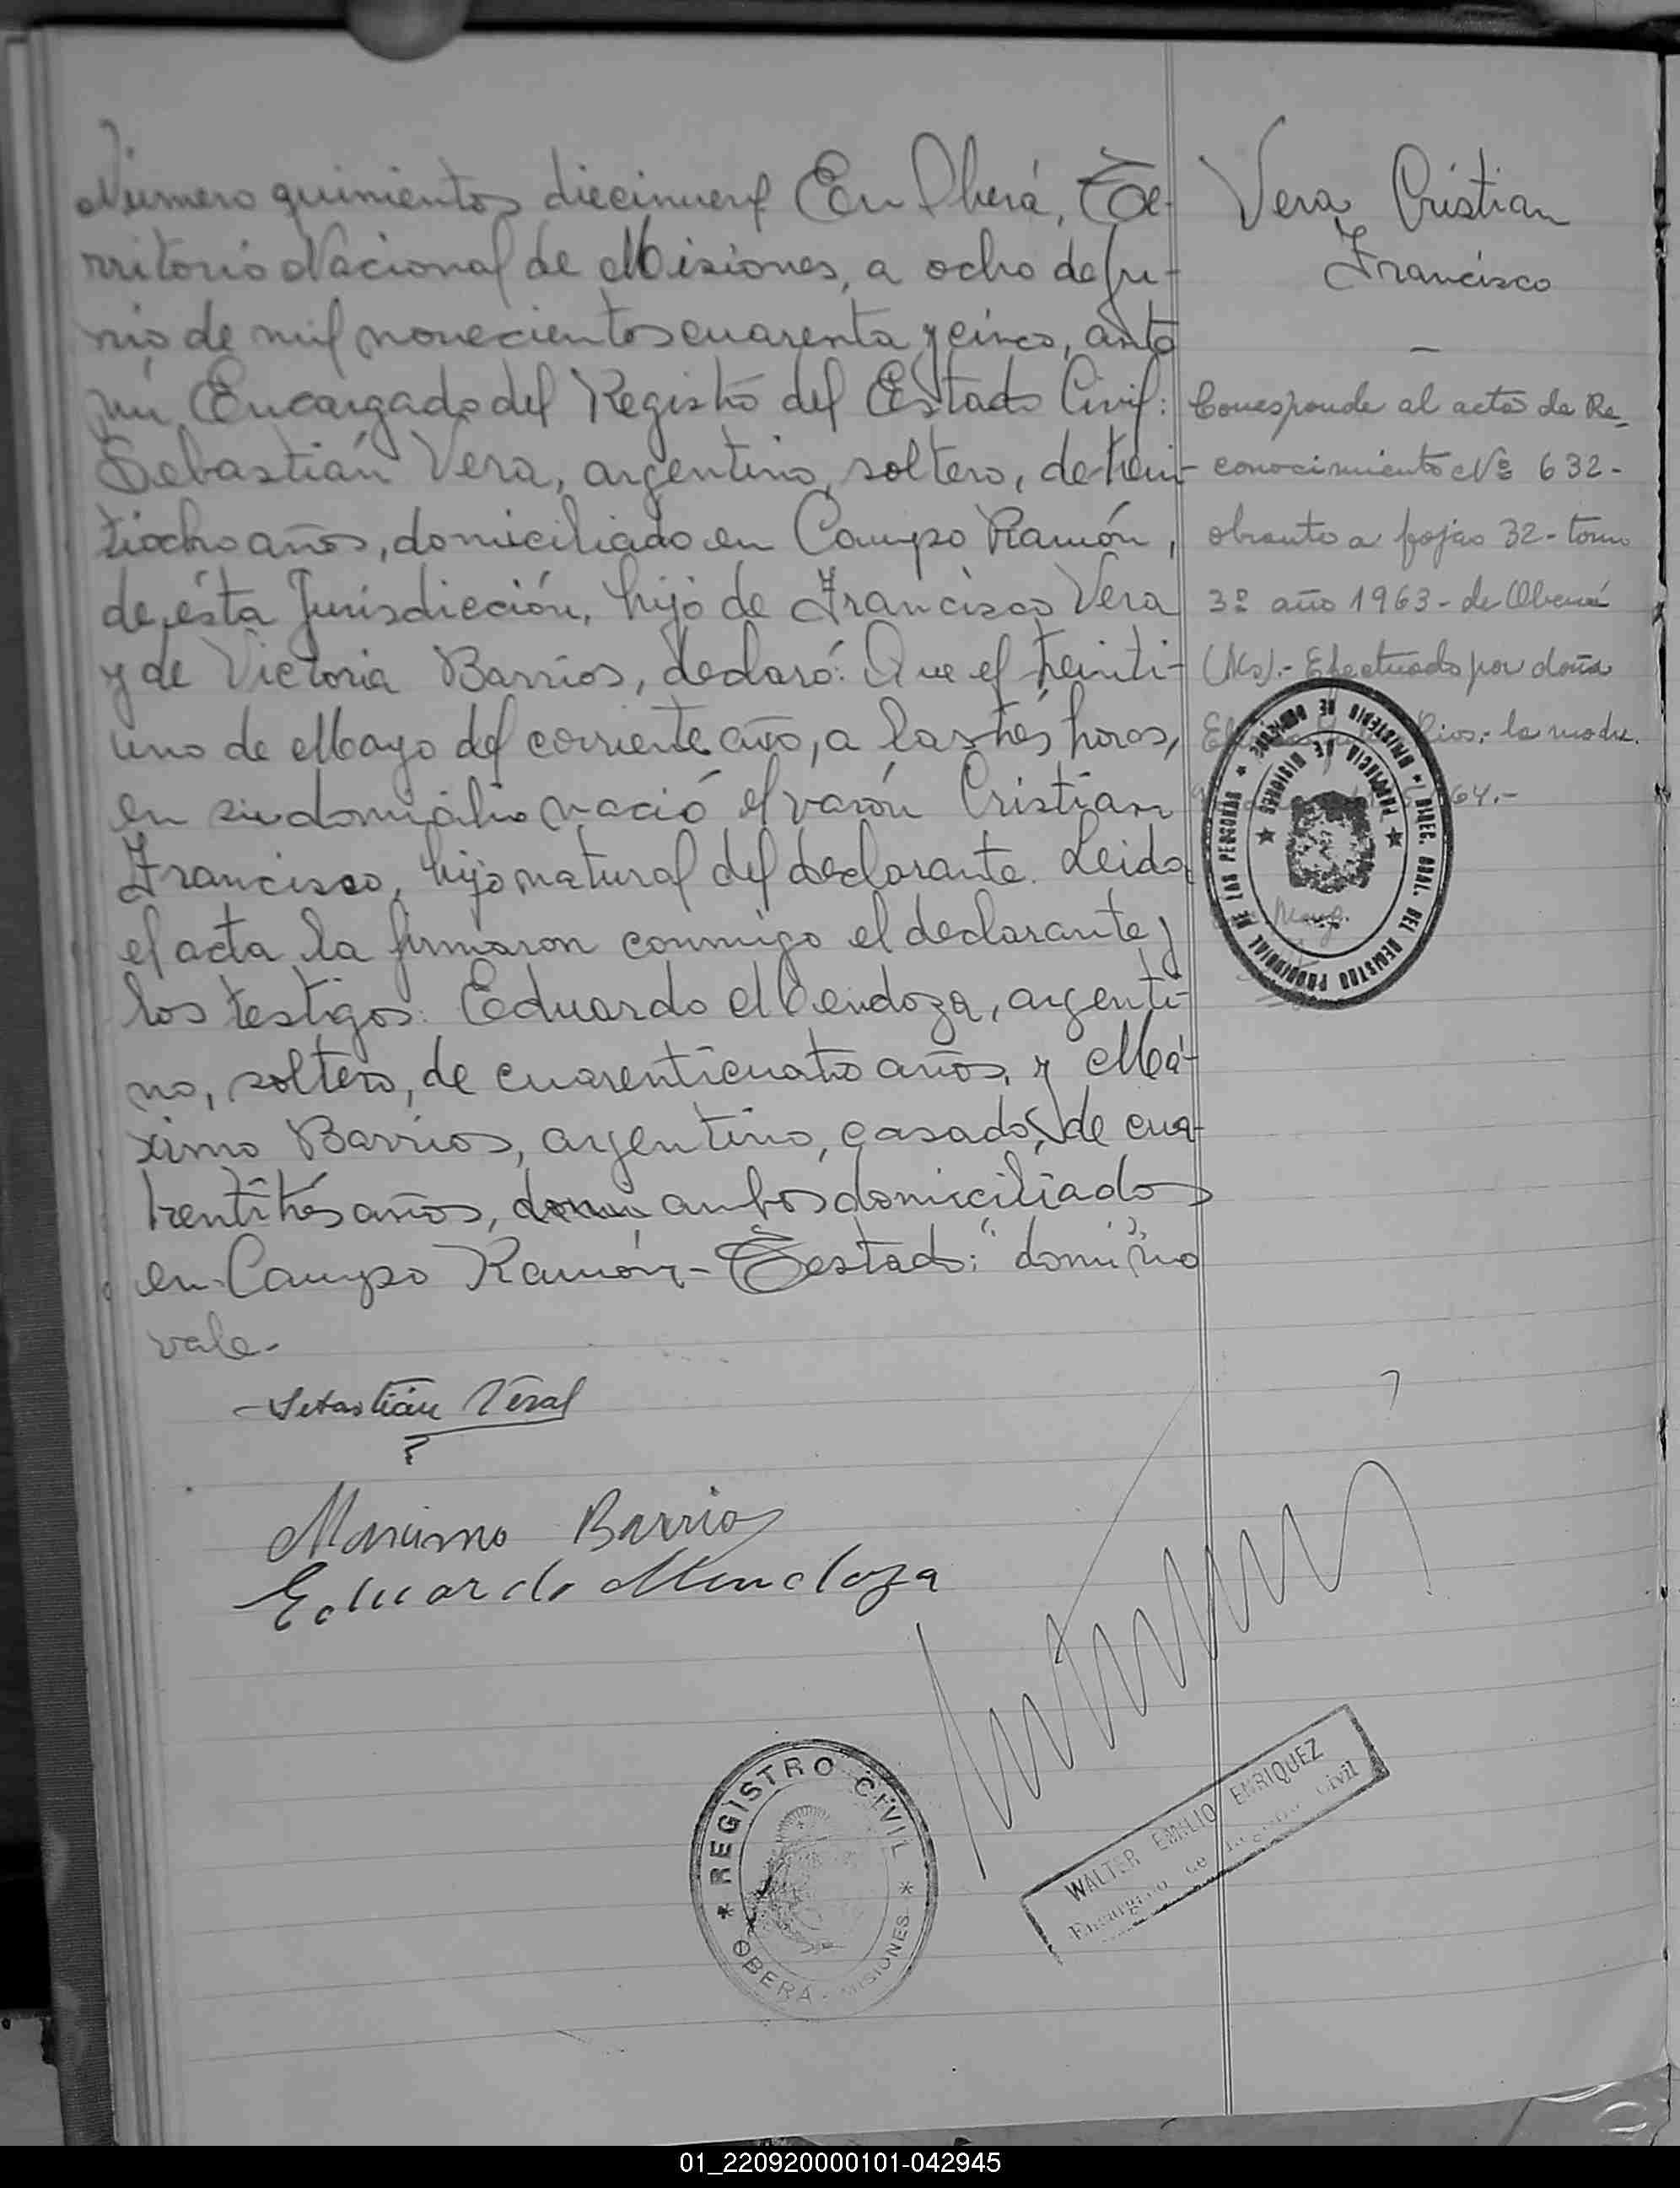 Número quinientos diecinueve En Oberá, Te-
rritorio Nacional de Misiones, a ocho de Ju-
nio de mil novecientos cuarenta y cinco, ante
mi Encargado del Registro del Estado Civil:
Sebastián Vera, argentino, soltero, de trein-
tiocho años, domiciliado en Campo Ramón,
de ésta Jurisdicción, hijo de Francisco Vera
y de Victoria Barrios, declaró: Que el treinti-
uno de Mayo del corriente año, a las tres horas,
en su domicilio nació el varón Cristian
Francisco, hijo natural del declarante. Leida
el acta la firmaron conmigo el declarante y
los testigos: Eduardo Mendoza, argenti-
no, soltero, de cuarenticuatro años, y Má-
ximo Barrios, argentino, casado, de cua-
rentitrés años, domi ambos domiciliados
en Campo Ramón.- Testado: "domi" no
vale.-
Sebastián Vera
Maximo Barrios
Eduardo Mendoza
Vera Cristian
Francisco
Corresponde al acta de Re-
conocimiento Nº 632-
obrante a fojas 32- tomo
3º año 1963- de Oberá
(Ms).- Efectuado por doña
Rios.- la madre.
64.-
DIREC. GRAL. DEL REGISTRO PROVINCIAL DE LAS PERSONAS * MINISTERIO DE
PROVINCIA DE MISIONES
* REGISTRO CIVIL *
OBERA - MISIONES
WALTER EMILIO ENRIQUEZ
Encargado de Registro Civil
01_220920000101-042945